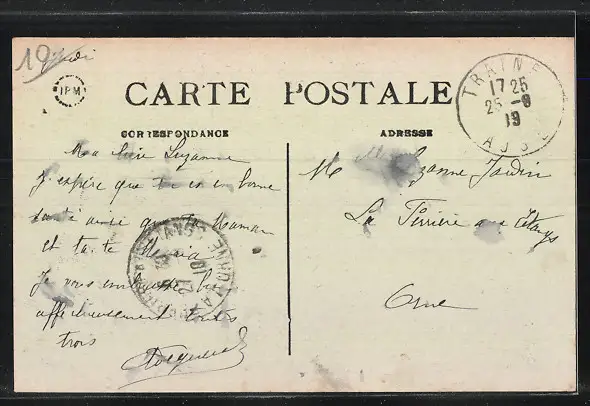 IPM
CARTE POSTALE
CORRESPONDANCE
ADRESSE
TRAINEL
17 25
25 -8
19
AUBE
Ma chère Suzanne
J'espère que tu es en bonne
santé ainsi que ta Maman
et tante Maria
Je vous embrasse bien
affectueusement toutes
trois
Suzanne Jardin
La Ferrière aux Etangs
Orne